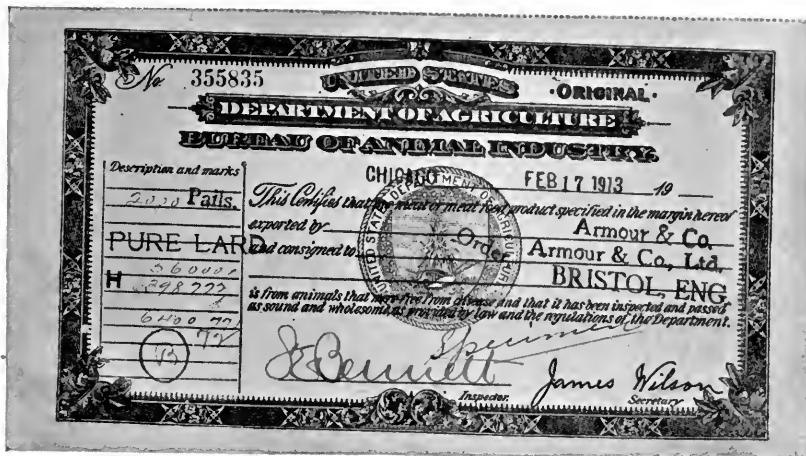 No. 355835
UNITED STATES
·ORIGINAL·
DEPARTMENT OF AGRICULTURE
BUREAU OF ANIMAL INDUSTRY.
Description and marks
CHICAGO FEB 17 1913 19
Pails.
This Certifies that the meat or meat food product specified in the margin hereof
exported by Armour & Co.
PURE LARD
and consigned to Order Armour & Co., Ltd.
H
BRISTOL, ENG
is from animals that were free from disease and that it has been inspected and passed
as sound and wholesome as provided by law and the regulations of the Department.
UNITED STATES DEPARTMENT OF AGRICULTURE
Specimen
Bennett
Inspector.
James Wilson
Secretary